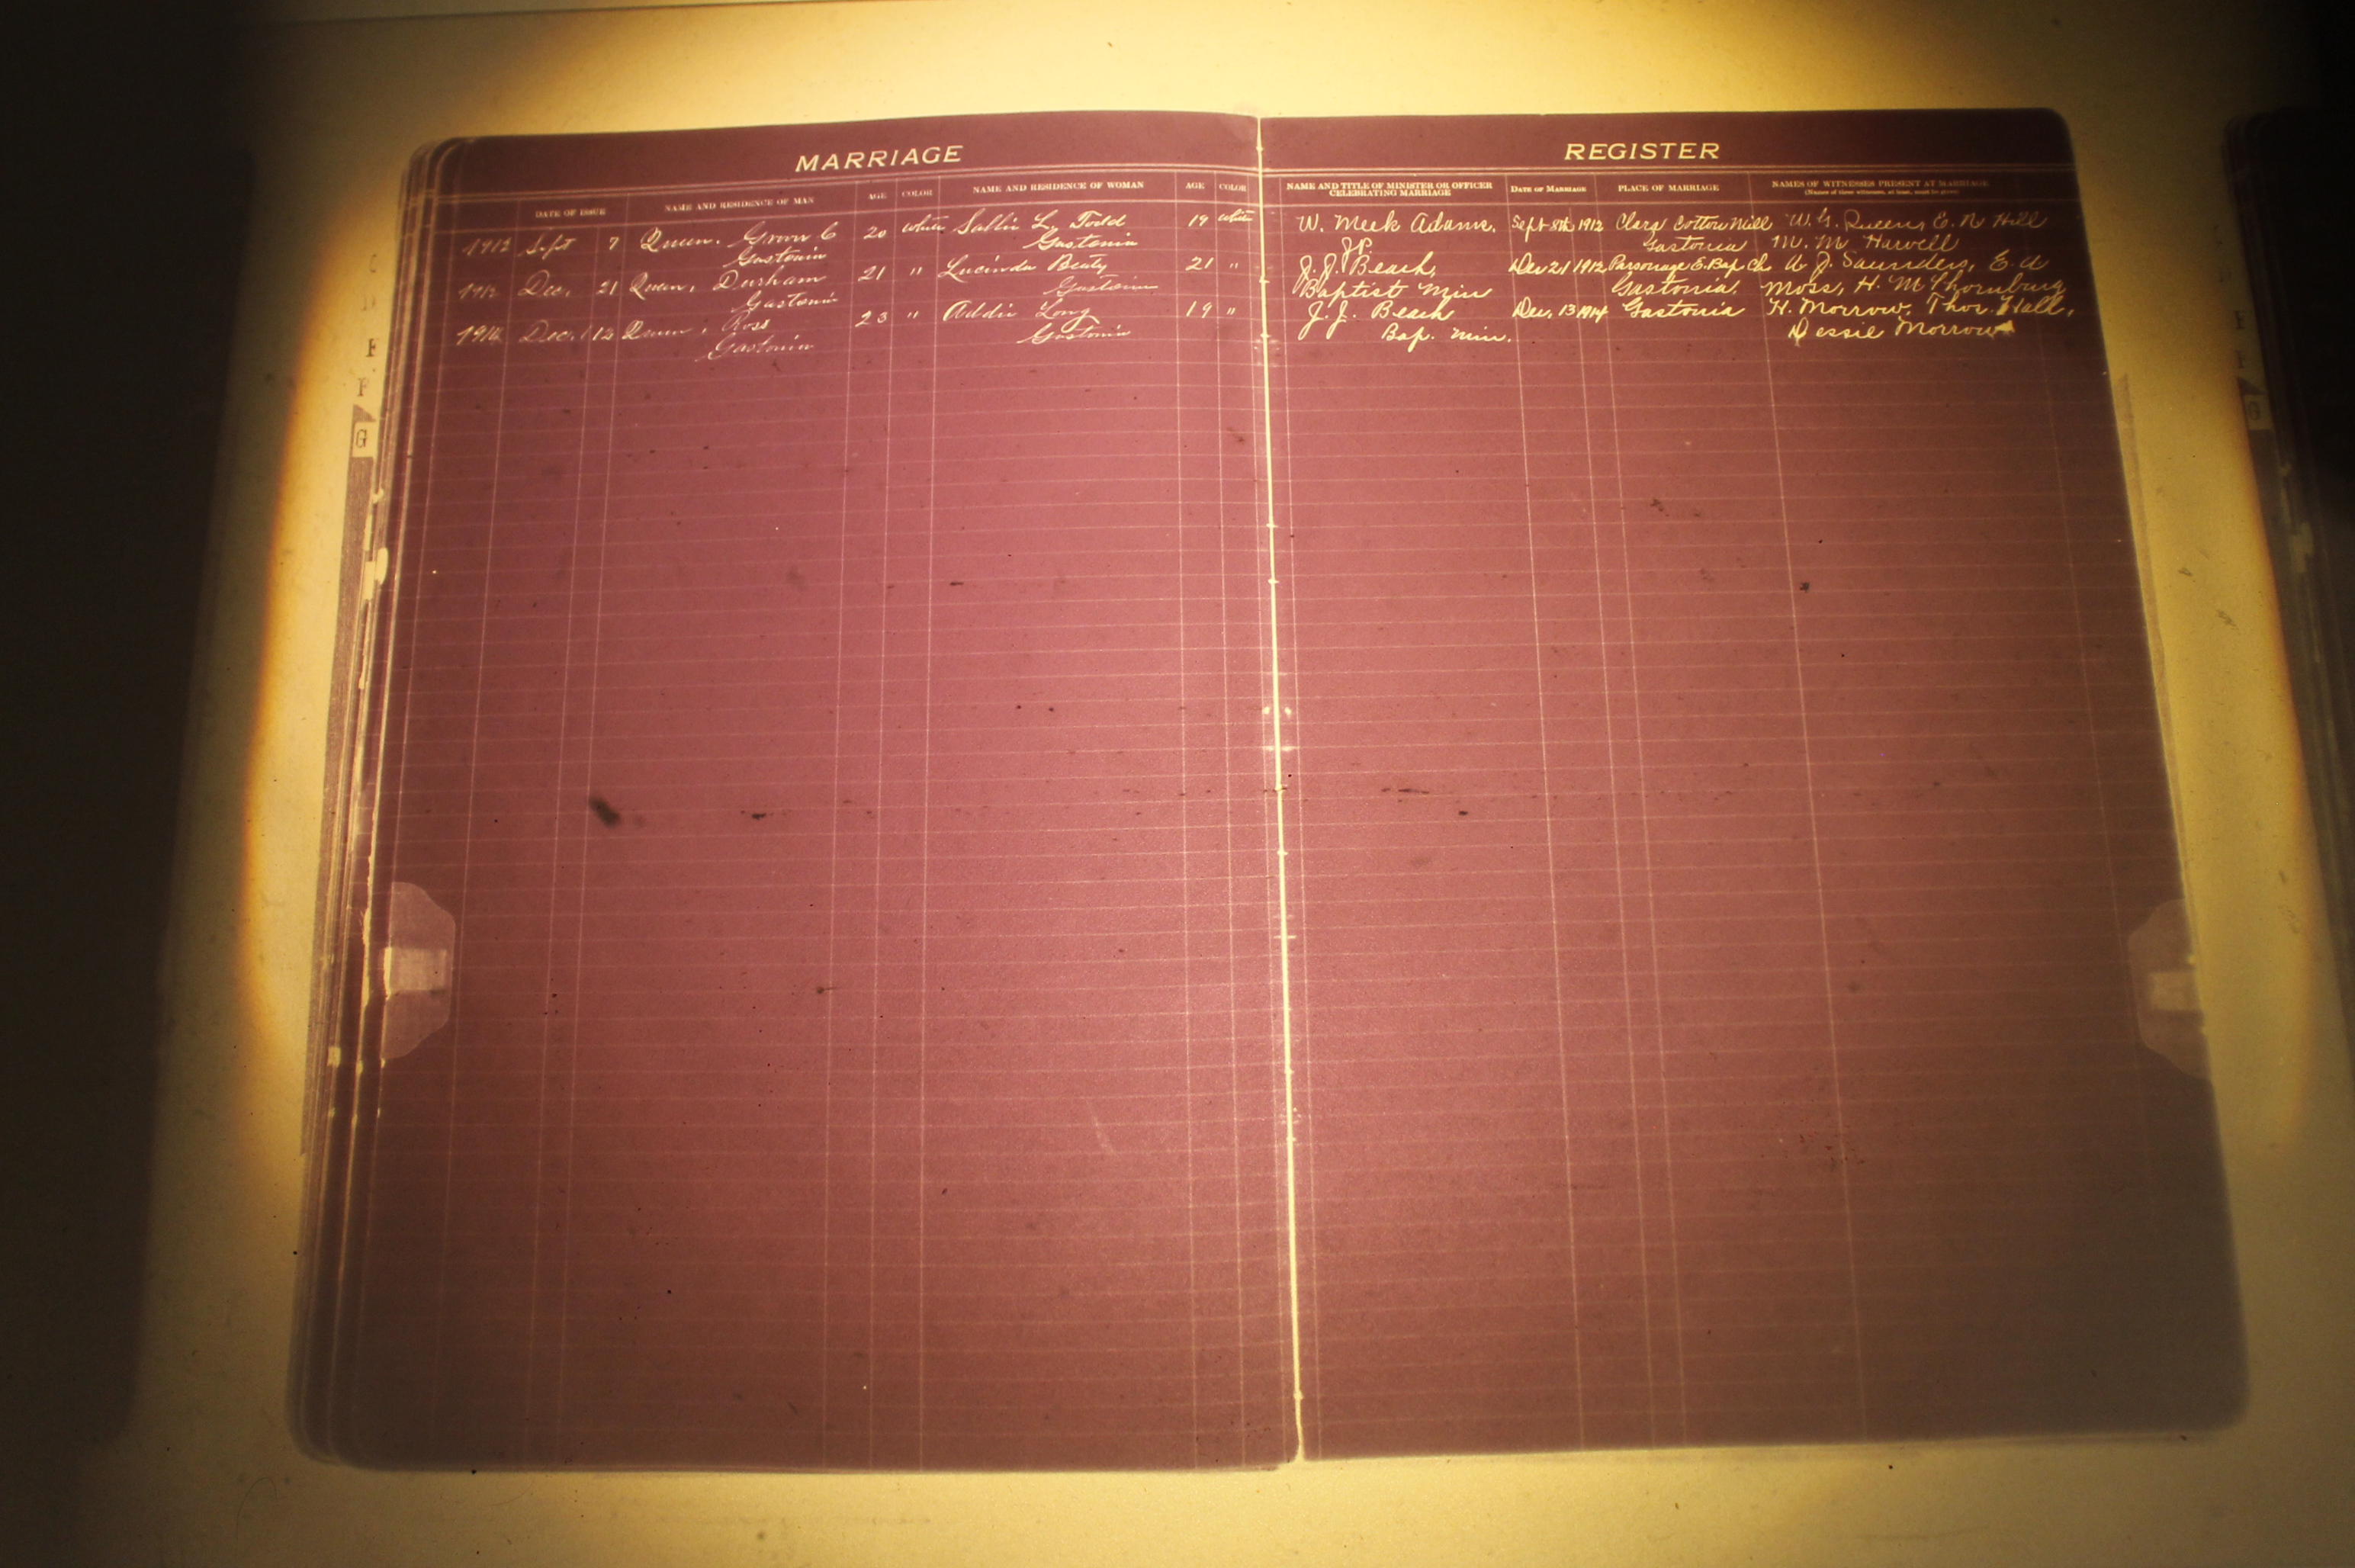 MARRIAGE REGISTER
DATE OF ISSUE NAME AND RESIDENCE OF MAN AGE COLOR NAME AND RESIDENCE OF WOMAN AGE COLOR NAME AND TITLE OF MINISTER OR OFFICER CELEBRATING MARRIAGE DATE OF MARRIAGE PLACE OF MARRIAGE NAMES OF WITNESSES PRESENT AT MARRIAGE
(Names of three witnesses, at least, must be given)
1912 Sept 7 Queen. Grover C 20 White Sallie L. Todd 19 White W. Meek Adams, Sept 8th 1912 Clara Cotton Mill W. G. Queen, E. R. Hill
Gastonia Gastonia J.P. Gastonia M. M. Harvell
1912 Dec. 21 Queen, Durham 21 " Lucinda Beaty 21 " J. J. Beach, Dec 21 1912 Parsonage E. Bap. Ch. A. J. Saunders, E. A
Gastonia Gastonia Baptist Min Gastonia, Moss, H. M Thornburg
1914 Dec. 12 Queen, Ross 23 " Addie Long 19 " J. J. Beach Dec, 13 1914 Gastonia H. Morrow, Thos. Hall,
Gastonia Gastonia Bap. Min. Dessie Morrow
F
F
G
G